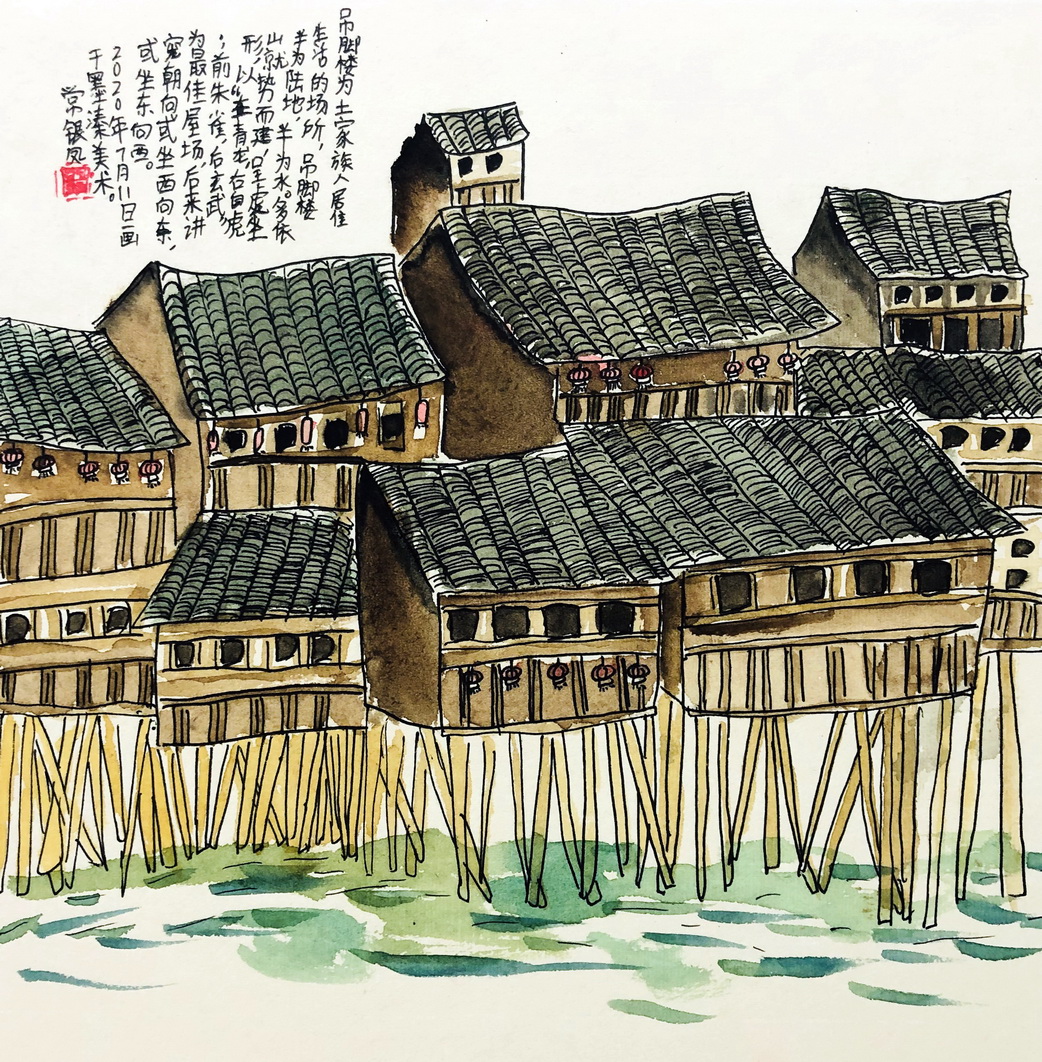 吊脚楼为土家族人居住
生活的场所，吊脚楼
半为陆地，半为水。多依
山就势而建，呈虎坐
形，以“左青龙，右白虎
，前朱雀，后玄武”
为最佳屋场，后来讲
究朝向或坐西向东，
或坐东向西。
2020年7月11日画
于墨溱美术。
常银凤